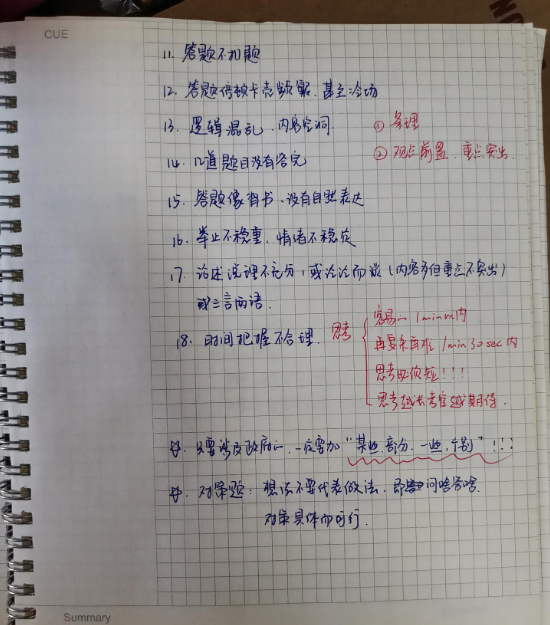 CUE
11. 答题不扣题
12. 答题停顿卡壳频繁、甚至冷场
13. 逻辑混乱、内容空洞 ① 条理
② 观点前置、重点突出
14. 几道题目没有答完
15. 答题像背书、没有自然表达
16. 举止不稳重、情绪不稳定
17. 论述说理不充分，或泛泛而谈（内容多但重点不突出）
或三言两语.
18. 时间把握不合理. 思考 容易的 1min内
再复杂再难 1min 30sec内
思考必须短！！！
思考越长考官越期待.
只要涉及政府的，一定要加“某些、部分、一些、个别”！！！
对策题：想法不要代表做法，即 问啥答啥.
对策具体而可行.
Summary